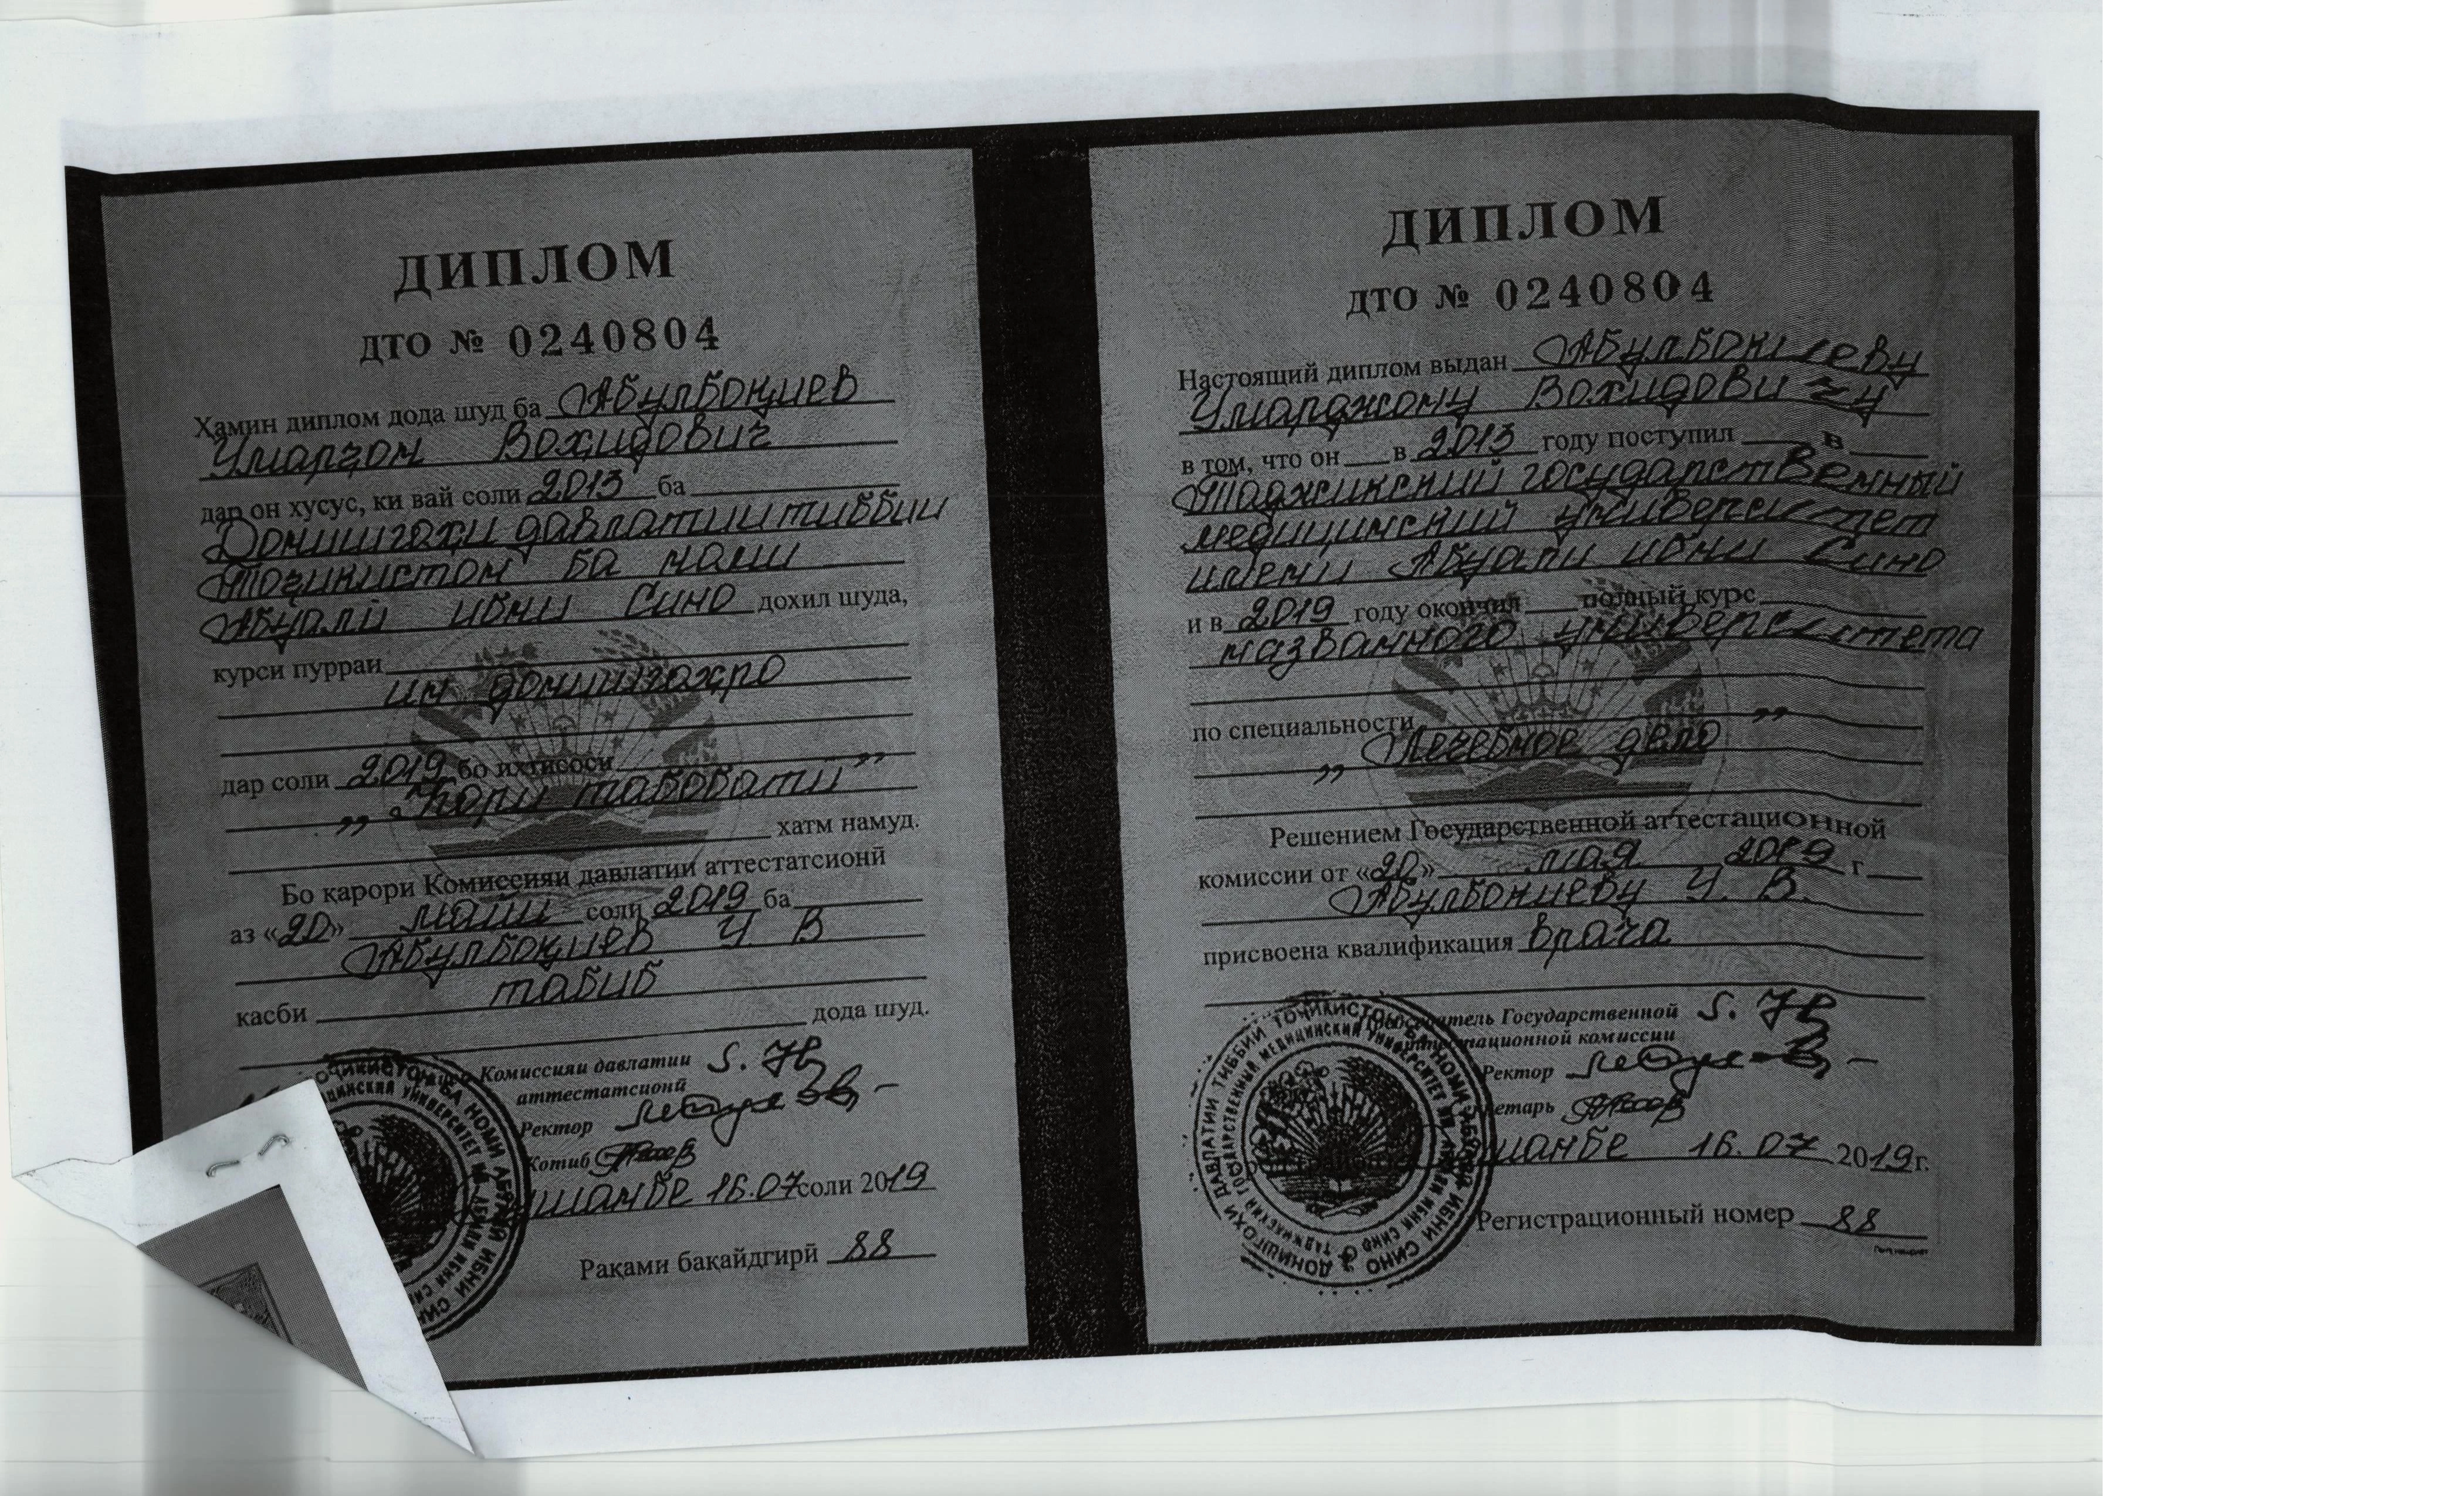 ДИПЛОМ
ДТО № 0240804
Ҳамин диплом дода шуд ба Абулбоқиев
Умарҷон Воҳидович
дар он хусус, ки вай соли 2013 ба
Донишгоҳи давлатии тиббии
Тоҷикистон ба номи
Абуалӣ ибни Сино дохил шуда,
курси пурраи
ин донишгоҳро
дар соли 2019 бо ихтисоси
„Кори табобатӣ”
хатм намуд.
Бо қарори Комиссияи давлатии аттестатсионӣ
аз «20» майи соли 2019 ба
Абулбоқиев У. В
касби табиб
дода шуд.
Комиссияи давлатии
аттестатсионӣ
Ректор
Котиб
шанбе 16.07 соли 2019
Рақами бақайдгирӣ 88
ДИПЛОМ
ДТО № 0240804
Настоящий диплом выдан Абулбокиеву
Умарджону Вохидовичу
в том, что он в 2013 году поступил в
Таджикский государственный
медицинский университет
имени Абуали ибни Сино
и в 2019 году окончил полный курс
названного университета
по специальности
„Лечебное дело”
Решением Государственной аттестационной
комиссии от «20» мая 2019 г
Абулбокиеву У. В.
присвоена квалификация врача
Государственной
комиссии
Ректор
шанбе 16.07 2019г.
Регистрационный номер 88
ДОНИШГОҲИ ДАВЛАТИИ ТИББИИ ТОҶИКИСТОН БА НОМИ АБӮАЛӢ ИБНИ СИНО